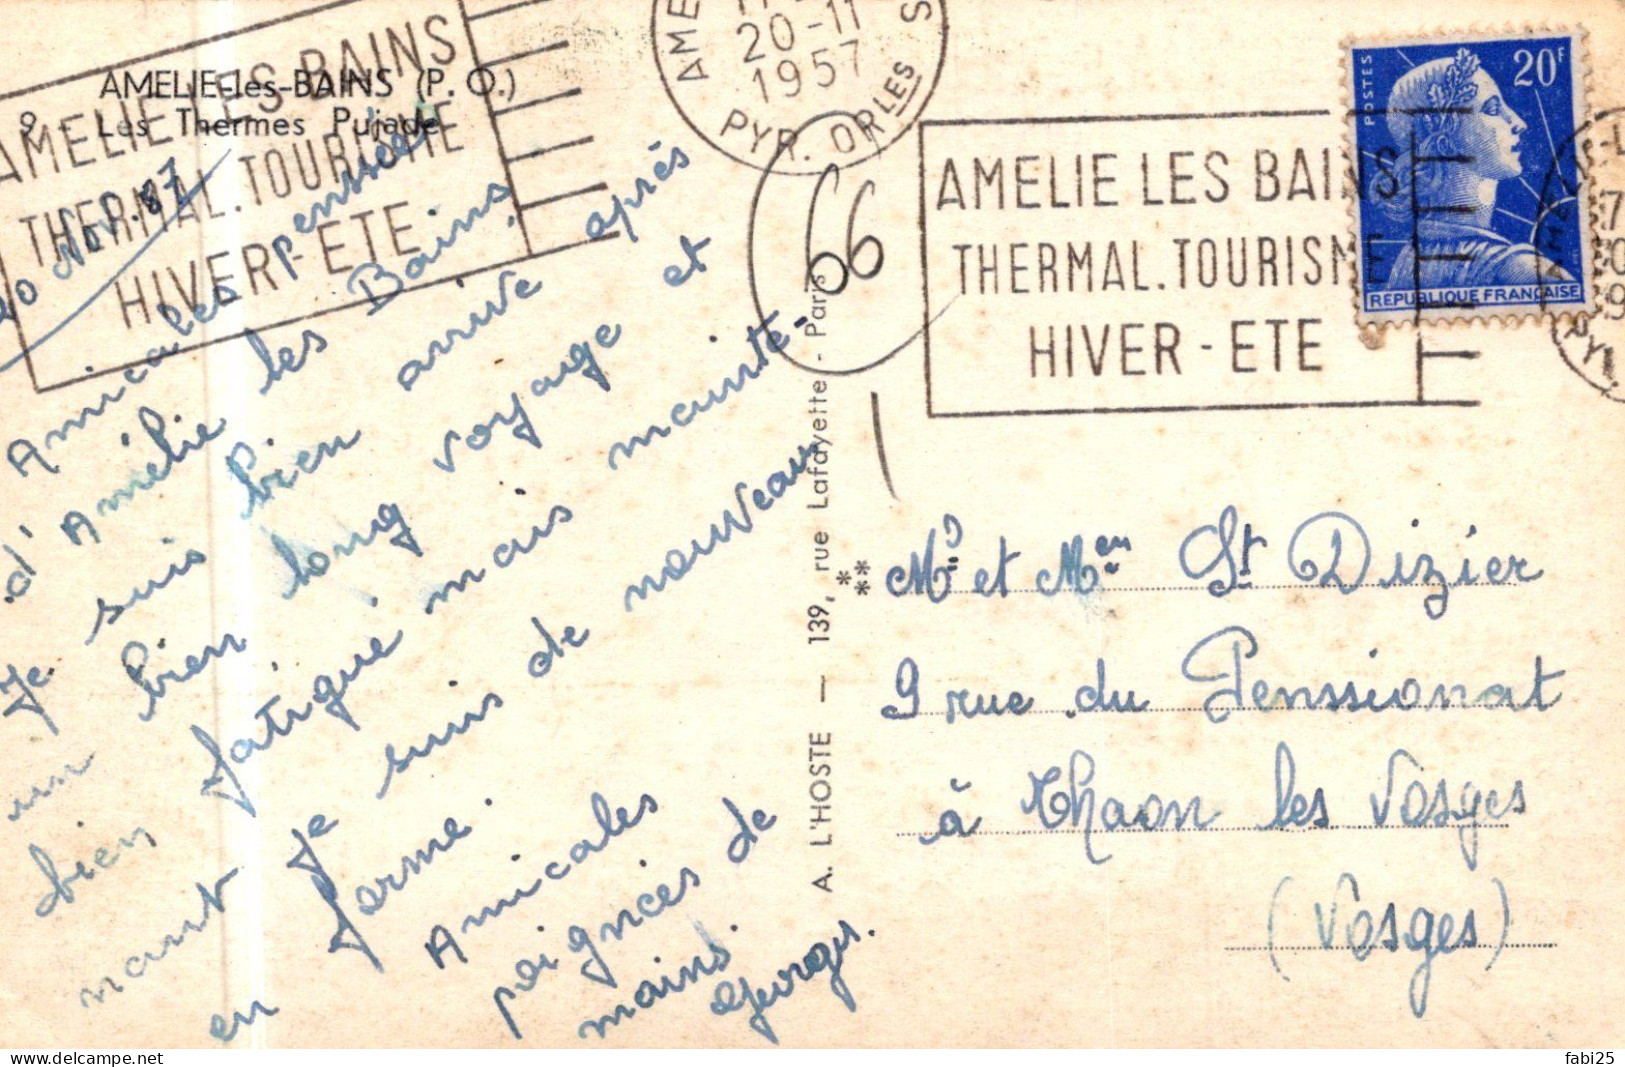 AMELIE-les-BAINS (P. O.)
9 - Les Thermes Pujade
AMELIE LES BAINS
THERMAL.TOURISME
HIVER-ETE
20-11
1957
PYR. ORLES
66
AMELIE LES BAINS
THERMAL.TOURISME
HIVER-ETE
POSTES
20F
REPUBLIQUE FRANÇAISE
20 Nov. 57
Amicales penssées
d'Amélie les Bains,
Je suis bien arrivé après
un bien long voyage et
bien fatigué mais mainte-
nant je suis de nouveau
en forme
Amicales
poignées de
mains.
Georges.
A. L'HOSTE — 139, rue Lafayette - Paris
Mr et Men St Dizier
9 rue du Penssionat
à Thaon les Vosges
(Vosges)
fabi25